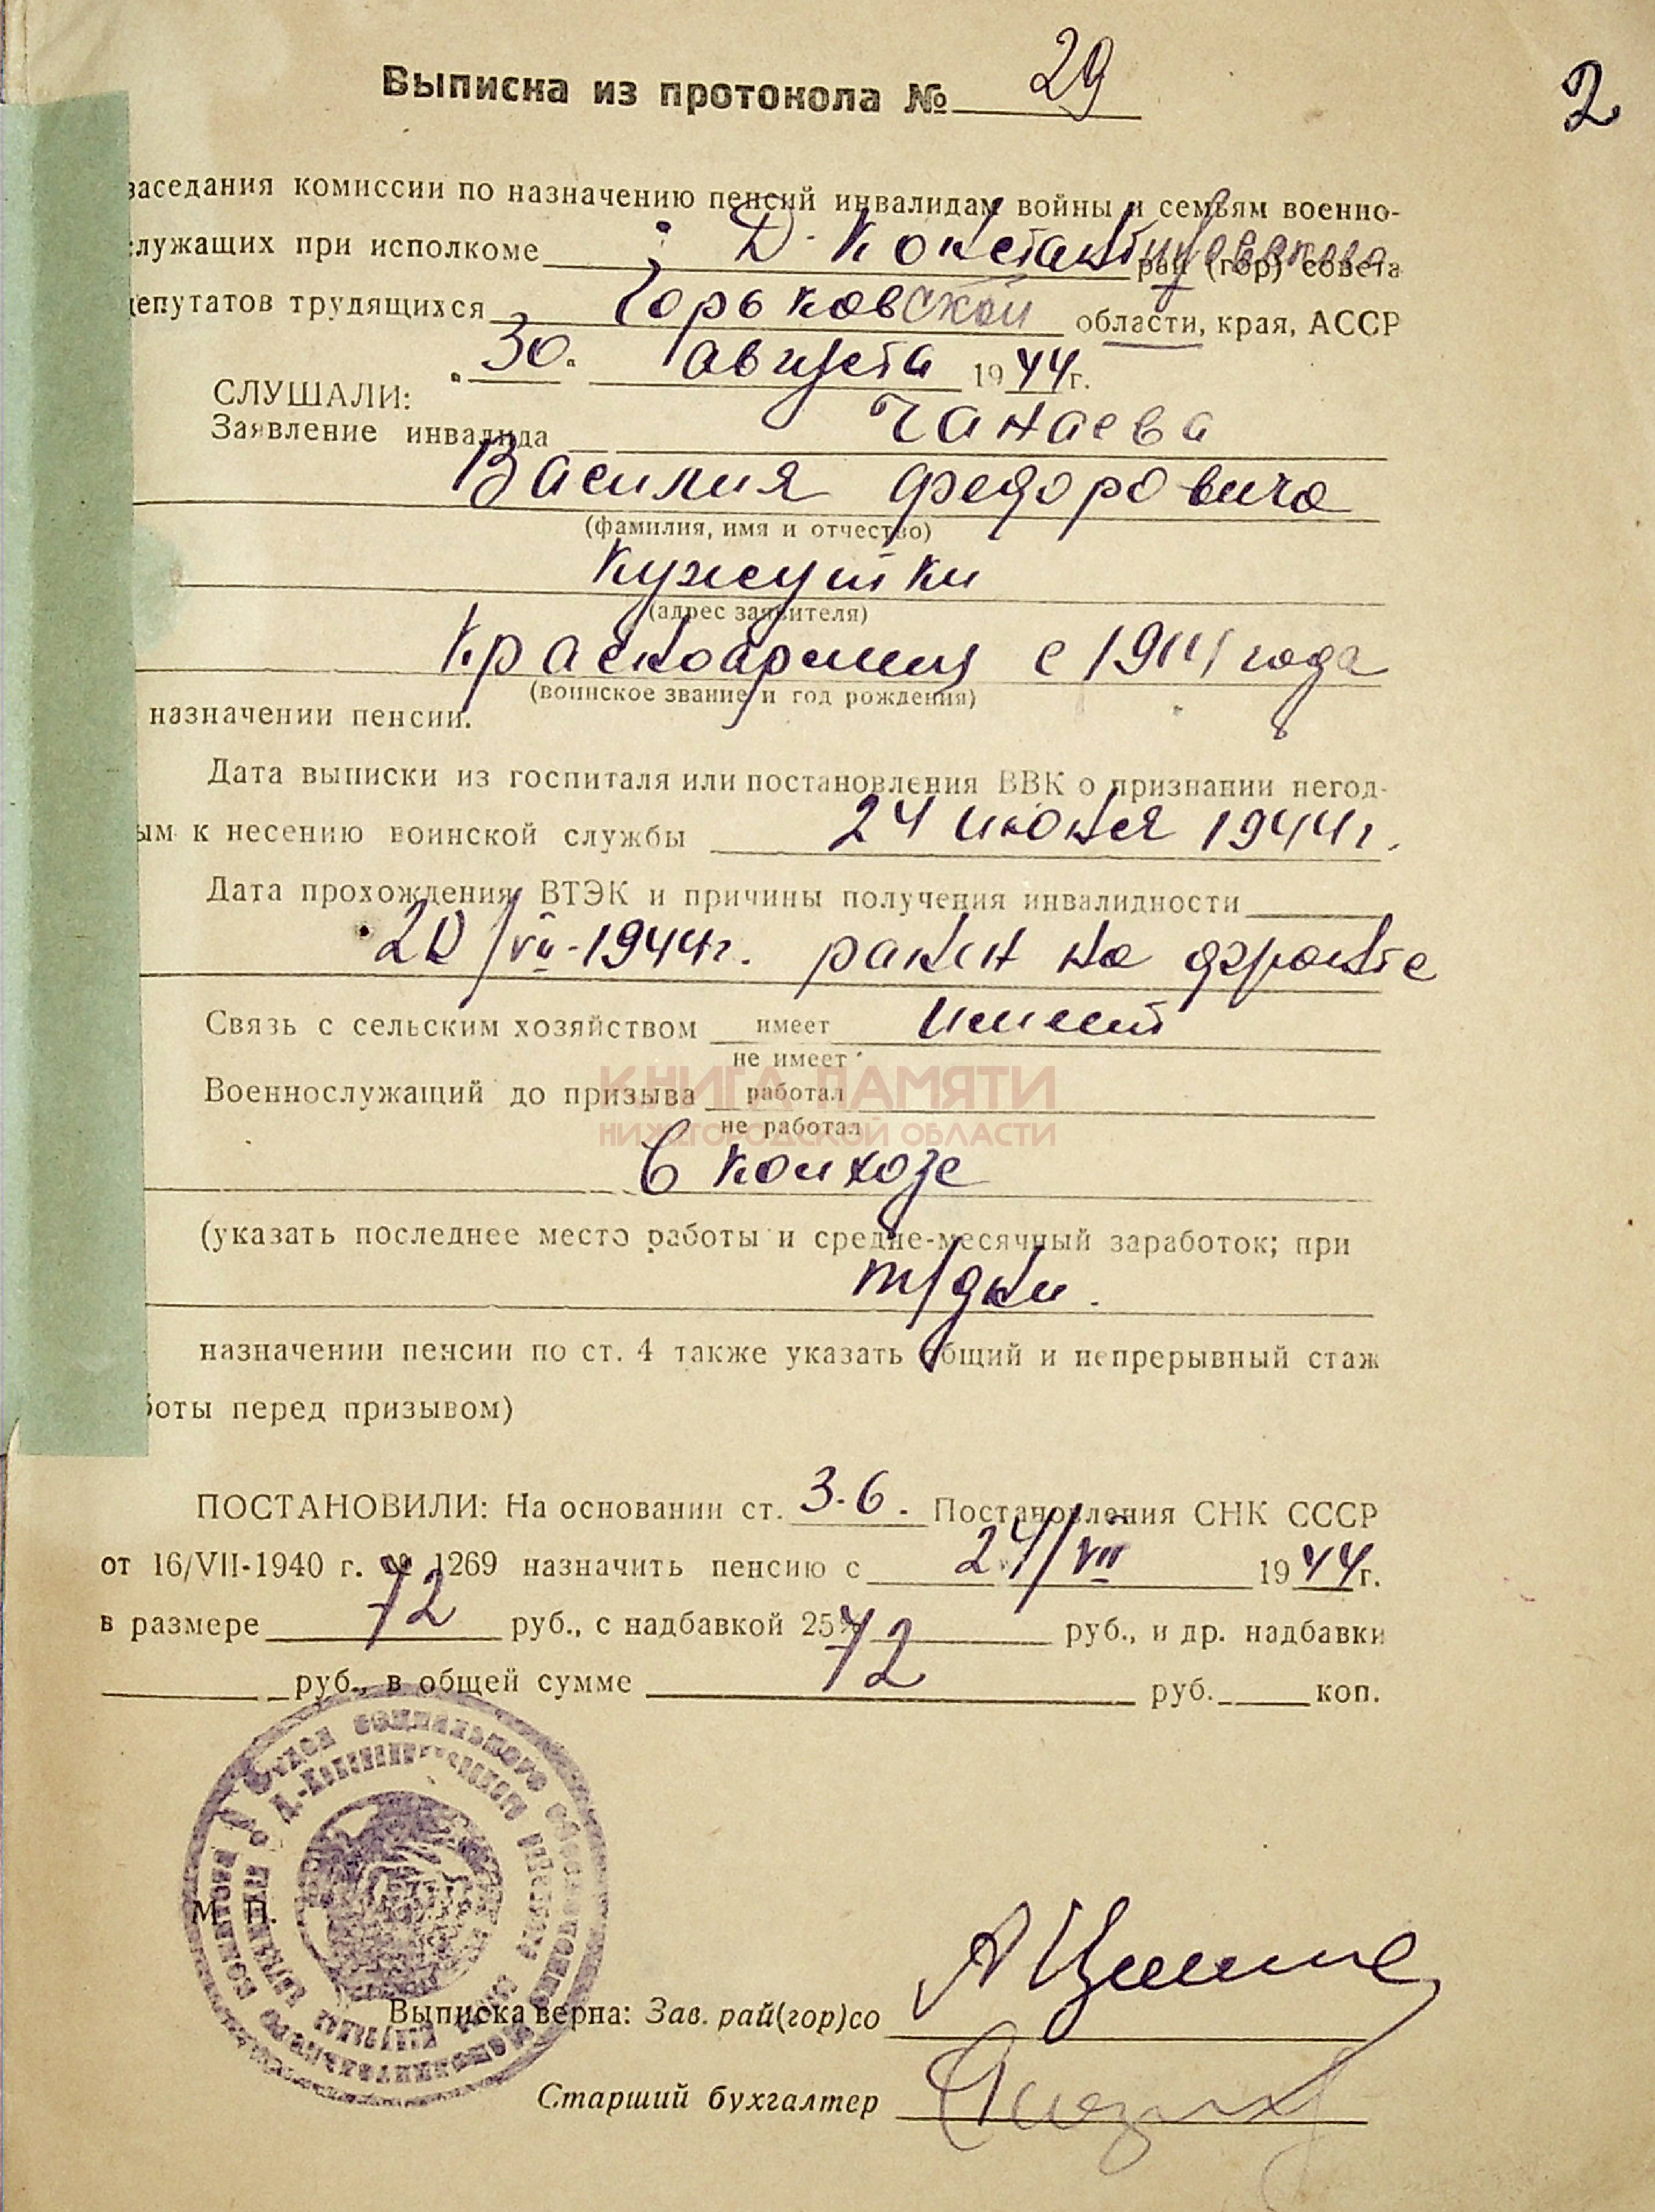 Выписка из протокола № 29
2
заседания комиссии по назначению пенсий инвалидам войны и семьям военно-
служащих при исполкоме Д-Константиновского рай (гор) совета
депутатов трудящихся Горьковской области, края, АССР
30. августа 1944г.
СЛУШАЛИ:
Заявление инвалида Чанаева
Василия Федоровича
(фамилия, имя и отчество)
Кужутки
(адрес заявителя)
Красноармеец с года
(воинское звание и год рождения)
назначении пенсии.
Дата выписки из госпиталя или постановления ВВК о признании негод-
ым к несению воинской службы 24 июня 1944г.
Дата прохождения ВТЭК и причины получения инвалидности
20/VII-1944г. ранен на фронте
Связь с сельским хозяйством имеет имеет
не имеет
КНИГА ПАМЯТИ
Военнослужащий до призыва работал
не работал
НИЖЕГОРОДСКОЙ ОБЛАСТИ
В колхозе
(указать последнее место работы и средне-месячный заработок; при
т/дни.
назначении пенсии по ст. 4 также указать общий и непрерывный стаж
боты перед призывом)
ПОСТАНОВИЛИ: На основании ст. 3-6. Постановления СНК СССР
от 16/VII-1940 г. № 1269 назначить пенсию с 24/VII 1944г.
в размере 72 руб., с надбавкой 25% руб., и др. надбавки
руб., в общей сумме 72 руб. коп.
Отдел социального обеспечения
М. П.
Выписка верна: Зав. рай(гор)со
Старший бухгалтер